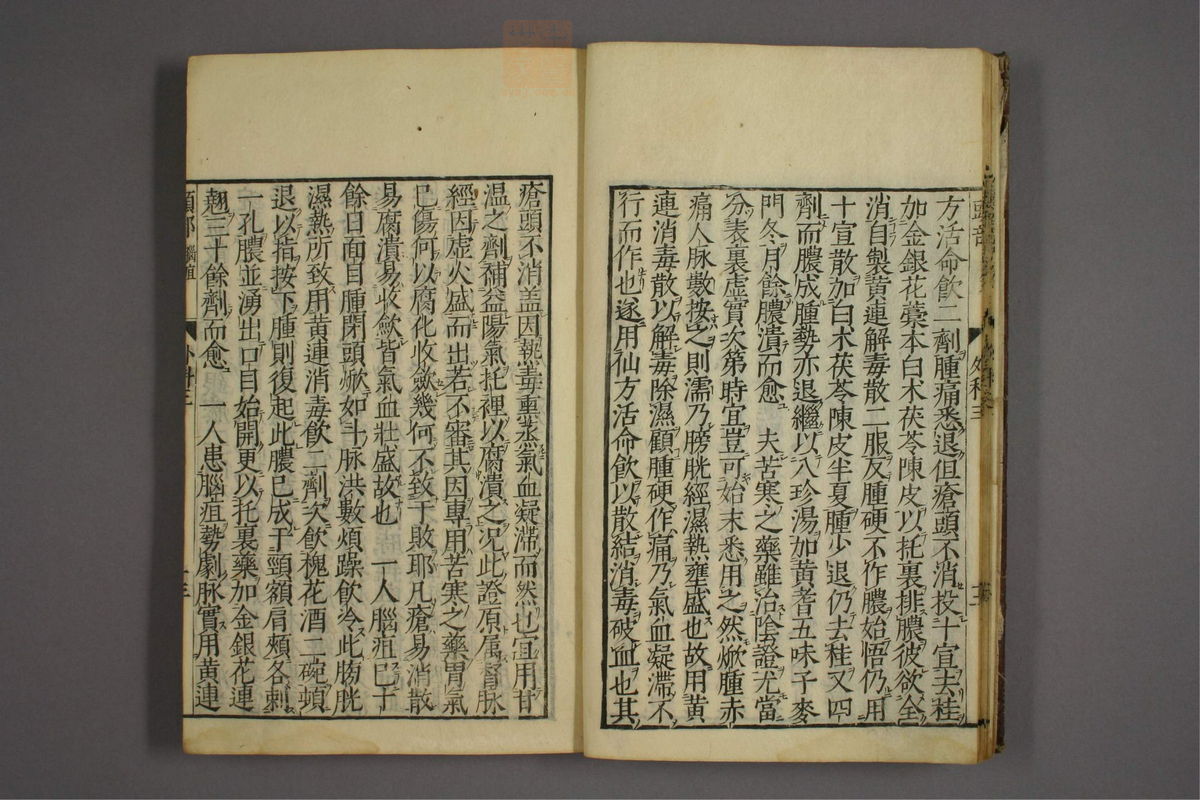 方活命飲二劑腫痛悉退但瘡頭不消投十宣去桂
加金銀花藁本白术茯苓陳皮以托裏排膿彼欲全
消自製黄連解毒散二服反腫硬不作膿始悟仍用
十宣散加白术茯苓陳皮半夏腫少退仍去桂又四
劑而膿成腫勢亦退繼以八珍湯加黄耆五味子麥
門冬月餘膿潰而愈　夫苦寒之藥雖治陰證尤當
分表裏虚實次第時宜豈可始末悉用之然焮腫赤
痛人脉數按之則濡乃膀胱經濕熱壅盛也故用黄
連消毒散以解毒除濕顧腫硬作痛乃氣血凝滯不
行而作也遂用仙方活命飲以散結消毒破血也其
瘡頭不消盖因熱毒熏蒸氣血凝滯而然也宜用甘
温之劑補益陽氣托裡以腐潰之况此證原属腎脉
經因虚火盛而出若不審其因專用苦寒之藥胃氣
已傷何以腐化收歛幾何不致于敗耶凡瘡易消散
易腐潰易收歛皆氣血壯盛故也　一人腦疽已十
餘日面目腫閉頭焮如斗脉洪數煩躁飲冷此膀胱
濕熱所致用黄連消毒飲二劑次飲槐花酒二碗頓
退以指按下腫則復起此膿已成于頸額肩頰各刺
一孔膿並湧出口目始開更以托裏藥加金銀花連
翹三十餘劑而愈　一人患腦疽勢劇脉實用黄連